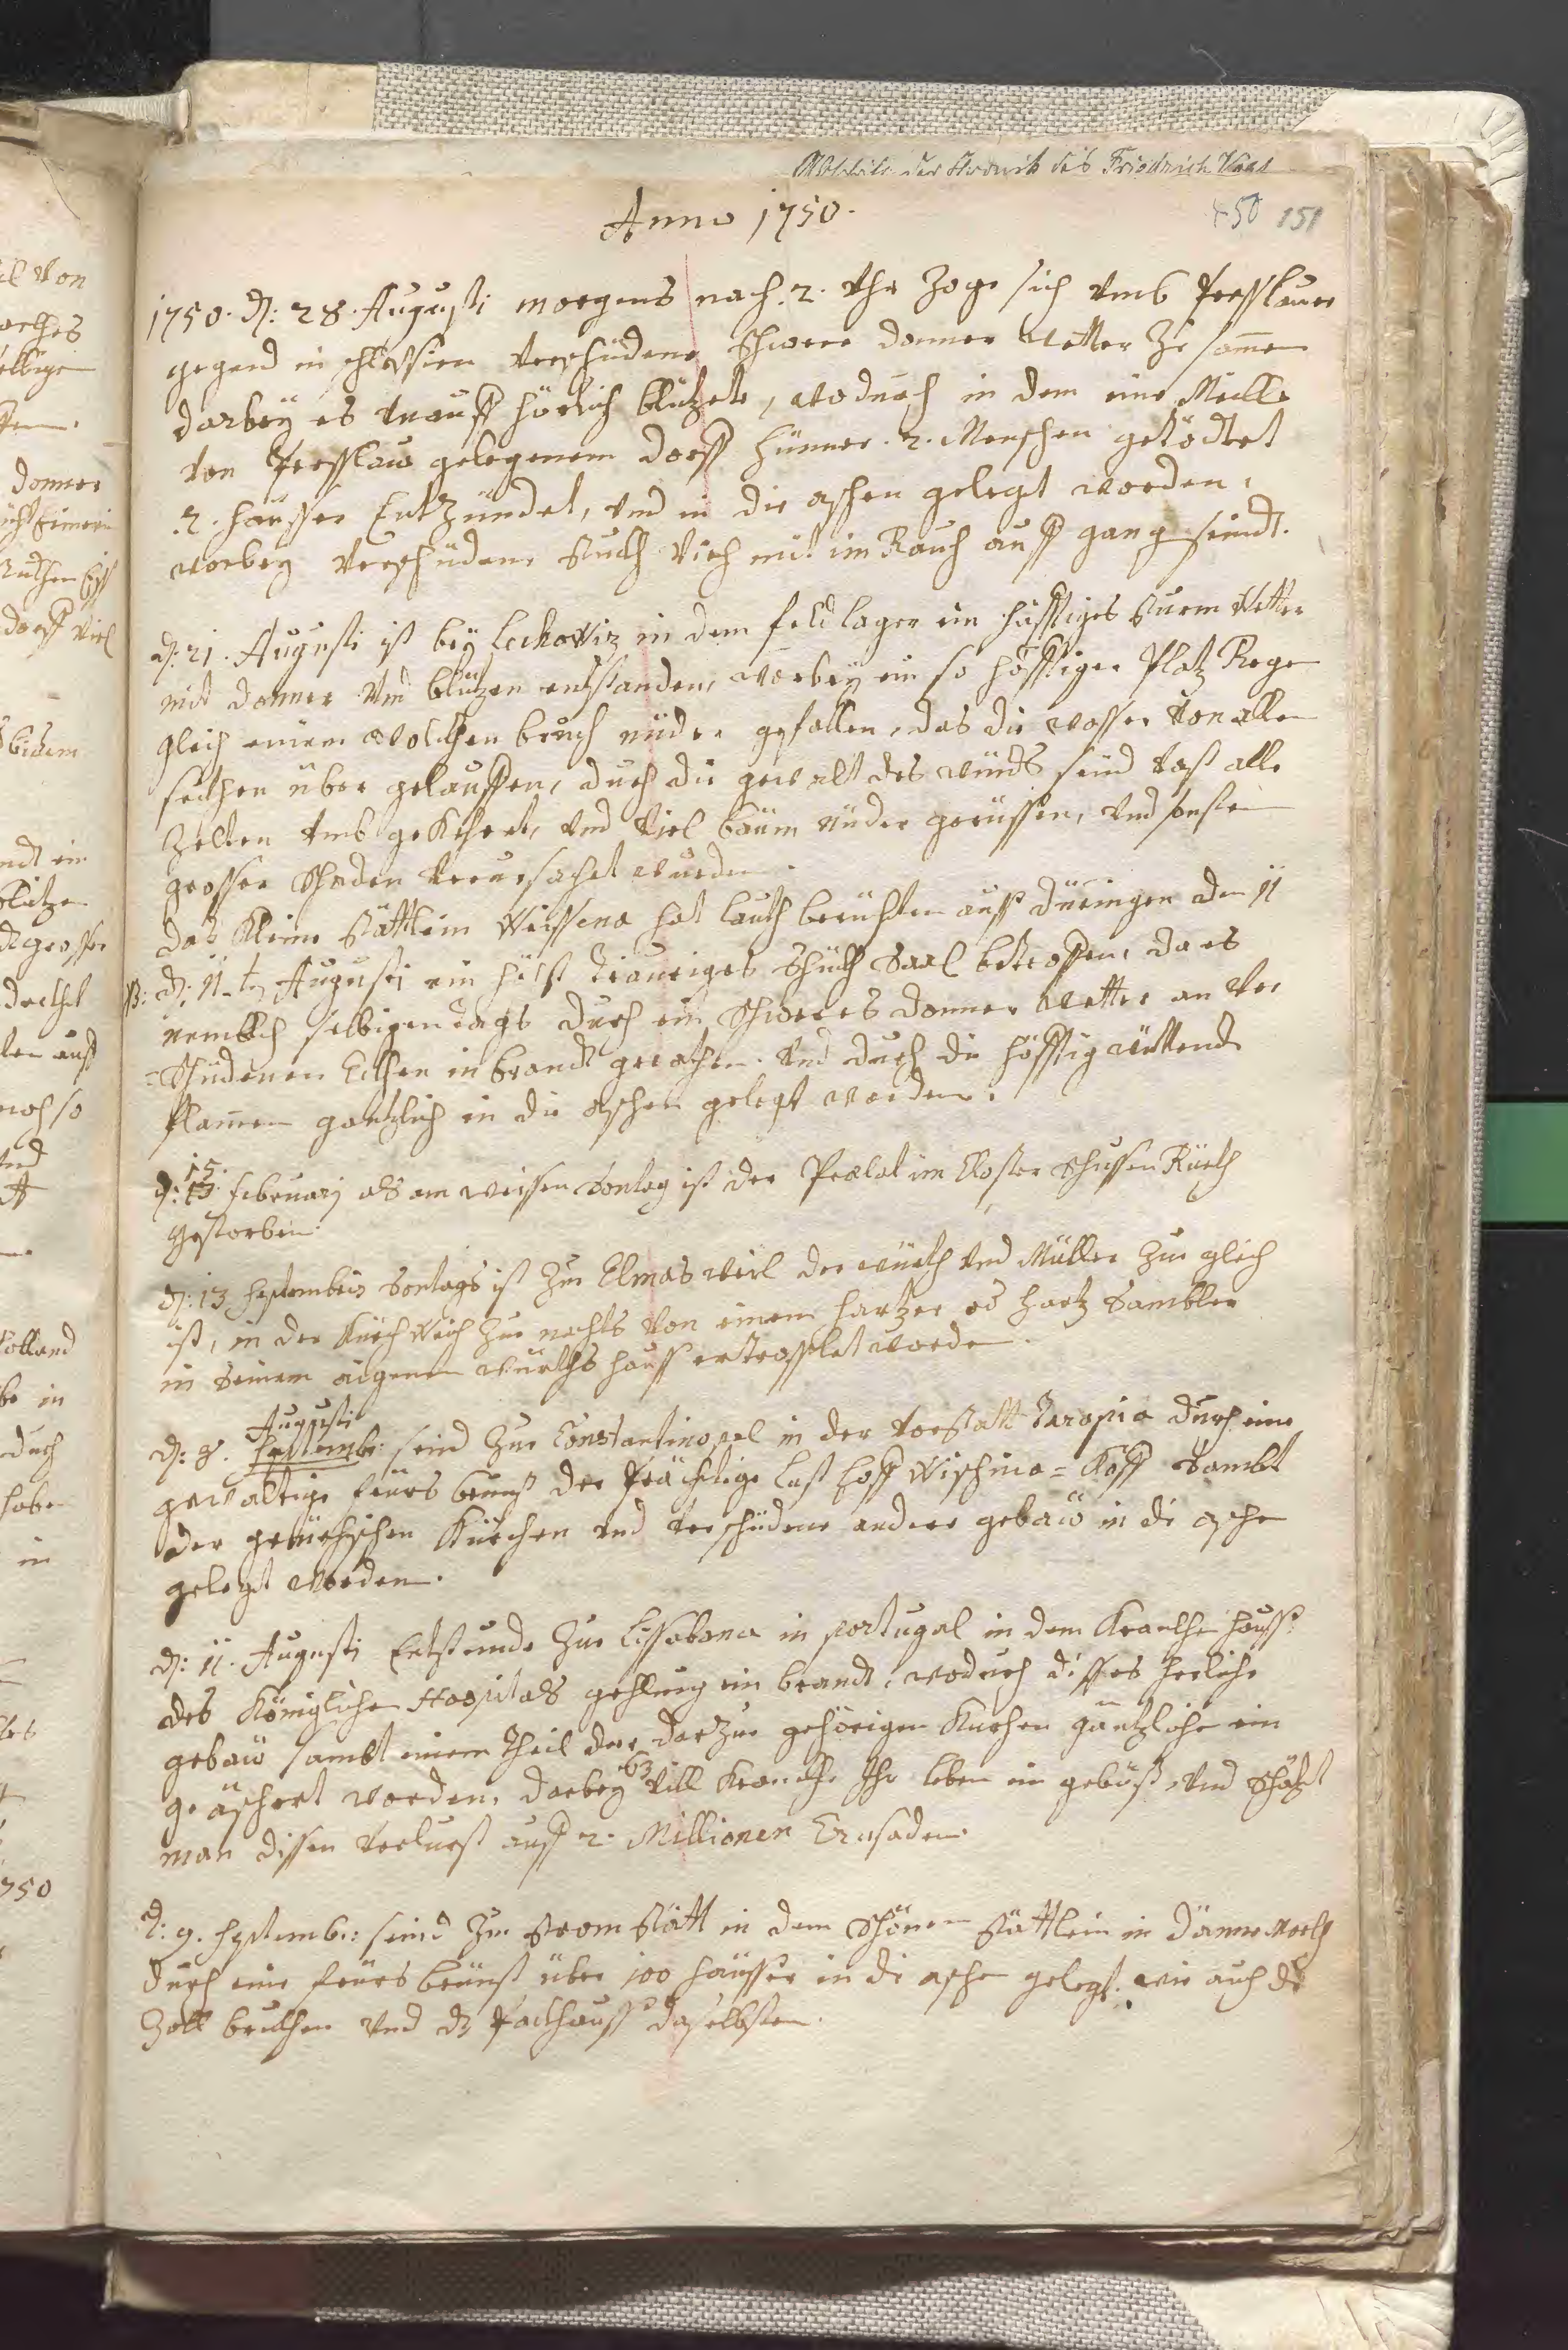 der Chronik des Friedrich Vaas
Anno 1750.
150 151
1750. d: 28. Augusti morgens nach. 2. Uhr zoge sich vmb Presslauer
gegend in schlesien verschidene schwere donner wetter zu samen
darbey es vnauff hörlich blitzete, wodurch in dem eine Meill
von Presslaw gelegenem dorff hünner. 2. Menschen getödtet
2. heüsser Entzündet, vnd in die aschen gelegt worden,
worbey verschidene stuckh vich mit im Rauch auff gang seindt.
d: 21. Augusti ist bey Leckowiz in dem feld lager ein häfftiges sturm Wetter
mit donner vnd blitzen entstanden, worbey ein so häfftiger Platz Rege
gleich einem wolckhen bruch nider gefallen, das die wasser von allen
seithen über geloffen, durch die gewalt des windts seind vast alle
Zelten vmb gekehret, vnd viel bäum nider gerissen, vnd sonsten
grosser schaden verursachet wurden.
das kleine stättlein Weissena hat lauth berichten auss düringen den 11
B: d: 11.t Augusti ein höchst trauriges schückh Saal betroffen, da es
nemblich selbigen dags durch ein schweres donner wetter an ver
=schidenen Eckhen in brandt gerathen. vnd durch die häfftig wüttende
flamen gäntzlich in die aschen gelegt worden.
d: 15. february als am weissen Sontag ist der Prælat im Closter schussen Rüeth
gestorben.
d: 13 Septembris Sontags ist zu Elmasweil der würth vnd Müller zu glich
ist, in der Kürchweich zu nachts von einem hartzer od hartz Sambler
in seinem aigenen würths hauss ertrosslet worden.
Augusti
d: 8. Septemb: seind zu Constantinopel in der vorstatt Tarapia durch eine
gewaltige feürs brunst der Prächtige lust hoff Wischma=Koff sambt
der griechischen Kürchen vnd verschidene andere gebäw in die aschen
gelegt worden.
d: 11. Augusti Entstunde zu Lissabona in portugal in dem Kranckhen hauss
des Königlichen Hospitals gehling ein brandt, wodurch disses herliche
gebäw sambt einem theil der darzu gehörigen Kürchen gäntzlich ein
geäschert worden, darbey 63 vill Krancke ihr leben ein gebüst, vnd schätzt
man dissen verlurst auff 2. Millionen Crusaden.
d: 9. septemb: seind zu Strom Stätt in dem schönen stättlein in Dännemarckh
durch eine feürs brunst über 100 häusser in die aschen gelegt. wie auch die
Zoll bruckhen vnd dz Packhauss daselbsten.